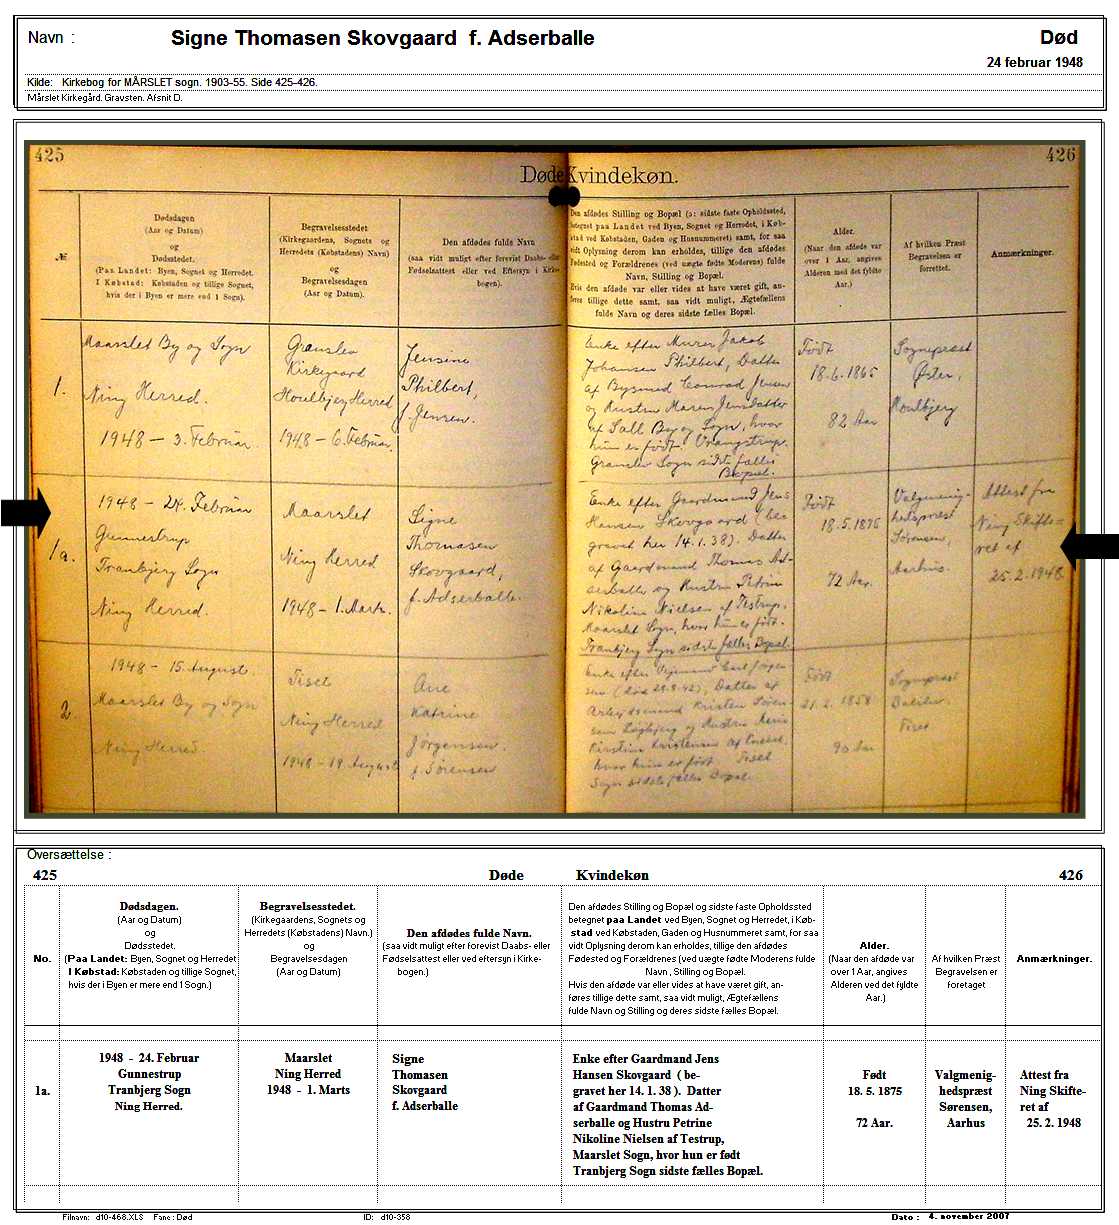 Navn :
Signe Thomasen Skovgaard f. Adserballe
Død
24 februar 1948
Kilde: Kirkebog for MÅRSLET sogn. 1903-55. Side 425-426.
Mårslet Kirkegård. Gravsten. Afsnit D.
425
426
Døde Kvindekøn.
№
Dødsdagen
(Aar og Datum)
og
Dødsstedet.
(Paa Landet: Byen, Sognet og Herredet.
I Købstad: Købstaden og tillige Sognet,
hvis der i Byen er mere end 1 Sogn).
Begravelsesstedet
(Kirkegaardens, Sognets og
Herredets (Købstadens) Navn)
og
Begravelsesdagen
(Aar og Datum).
Den afdødes fulde Navn
(saa vidt muligt efter forevist Daabs- eller
Fødselsattest eller ved Eftersyn i Kirke-
bogen).
Den afdødes Stilling og Bopæl (ɔ: sidste faste Opholdssted,
betegnet paa Landet ved Byen, Sognet og Herredet, i Køb-
stad ved Købstaden, Gaden og Husnummeret) samt, for saa
vidt Oplysning derom kan erholdes, tillige den afdødes
Fødested og Forældrenes (ved uægte fødte Moderens) fulde
Navn, Stilling og Bopæl.
Hvis den afdøde var eller vides at have været gift, an-
føres tillige dette samt, saa vidt muligt, Ægtefællens
fulde Navn og deres sidste fælles Bopæl.
Alder.
(Naar den afdøde var
over 1 Aar, angives
Alderen med det fyldte
Aar.)
Af hvilken Præst
Begravelsen er
forrettet.
Anmærkninger.
1.
Maarslet By og Sogn
Ning Herred.
1948 – 3. Februar.
Granslev
Kirkegaard
Houlbjerg Herred
1948 – 6. Februar.
Jensine
Philbert,
f. Jensen.
Enke efter Murer Jakob
Johansen Philbert, Datter
af Bysmed Conrad Jensen
og Hustru Maren Jensdatter
af Sall By og Sogn, hvor
hun er født. Vrangstrup,
Granslev Sogn sidste fælles
Bopæl.
Født
18.6.1865
82 Aar
Sognepræst
Øster,
Houlbjerg
1a.
1948 – 24. Februar
Gunnestrup
Tranbjerg Sogn
Ning Herred.
Maarslet
Ning Herred
1948 – 1. Marts.
Signe
Thomasen
Skovgaard,
f. Adserballe.
Enke efter Gaardmand Jens
Hansen Skovgaard (be-
gravet her 14.1.38). Datter
af Gaardmand Thomas Ad-
serballe og Hustru Petrine
Nikoline Nielsen af Testrup,
Maarslet Sogn, hvor hun er født.
Tranbjerg Sogn sidste fælles Bopæl.
Født
18.5.1875
72 Aar.
Valgmenig-
hedspræst
Sørensen,
Aarhus.
Attest fra
Ning Skifte-
ret af
25.2.1948
2
1948 – 15. August.
Maarslet By og Sogn
Ning Herred.
Tiset
Ning Herred
1948 – 19. August
Ane
Katrine
Jørgensen
f. Sørensen
Enke efter Vejmand Carl Jørgen-
sen (død 29.8.42), Datter af
Arbejdsmand Kristen Søren-
sen og Hustru
Kirstine Kristensen af
hvor hun er født. Tiset
Sogn sidste fælles Bopæl.
Født
21.2.1858
90 Aar
Sognepræst
Tiset
Oversættelse :
425
Døde Kvindekøn
426
No.
Dødsdagen.
(Aar og Datum)
og
Dødsstedet.
(Paa Landet: Byen, Sognet og Herredet
I Købstad: Købstaden og tillige Sognet,
hvis der i Byen er mere end 1 Sogn.)
Begravelsesstedet.
(Kirkegaardens, Sognets og
Herredets (Købstadens) Navn.)
og
Begravelsesdagen
(Aar og Datum)
Den afdødes fulde Navn.
(saa vidt muligt efter forevist Daabs- eller
Fødselsattest eller ved eftersyn i Kirke-
bogen.)
Den afdødes Stilling og Bopæl og sidste faste Opholdssted
betegnet paa Landet ved Byen, Sognet og Herredet, i Køb-
stad ved Købstaden, Gaden og Husnummeret samt, for saa
vidt Oplysning derom kan erholdes, tillige den afdødes
Fødested og Forældrenes (ved uægte fødte Moderens fulde
Navn , Stilling og Bopæl.
Hvis den afdøde var eller vides at have været gift, an-
føres tillige dette samt, saa vidt muligt, Ægtefællens
fulde Navn og Stilling og deres sidste fælles Bopæl.
Alder.
(Naar den afdøde var
over 1 Aar, angives
Alderen ved det fyldte
Aar.)
Af hvilken Præst
Begravelsen er
foretaget
Anmærkninger.
1a.
1948 - 24. Februar
Gunnestrup
Tranbjerg Sogn
Ning Herred.
Maarslet
Ning Herred
1948 - 1. Marts
Signe
Thomasen
Skovgaard
f. Adserballe
Enke efter Gaardmand Jens
Hansen Skovgaard ( be-
gravet her 14. 1. 38 ). Datter
af Gaardmand Thomas Ad-
serballe og Hustru Petrine
Nikoline Nielsen af Testrup,
Maarslet Sogn, hvor hun er født
Tranbjerg Sogn sidste fælles Bopæl.
Født
18. 5. 1875
72 Aar.
Valgmenig-
hedspræst
Sørensen,
Aarhus
Attest fra
Ning Skifte-
ret af
25. 2. 1948
Filnavn: d10-468.XLS Fane : Død
ID: d10-358
Dato : 4. november 2007